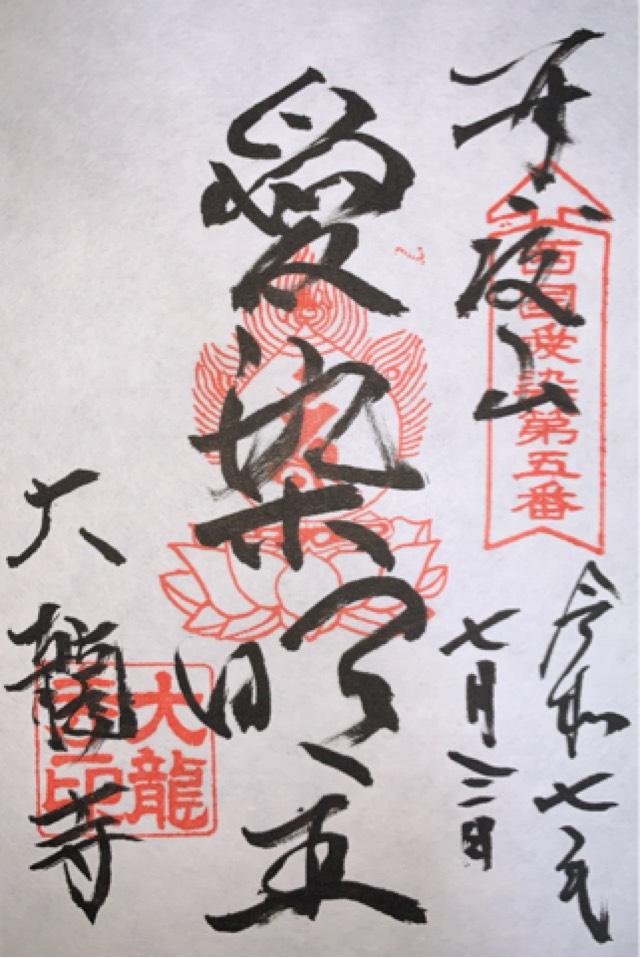 再度山
西國愛染第五番
令和七年
七月三日
愛染明王
大龍寺
大龍
寺印